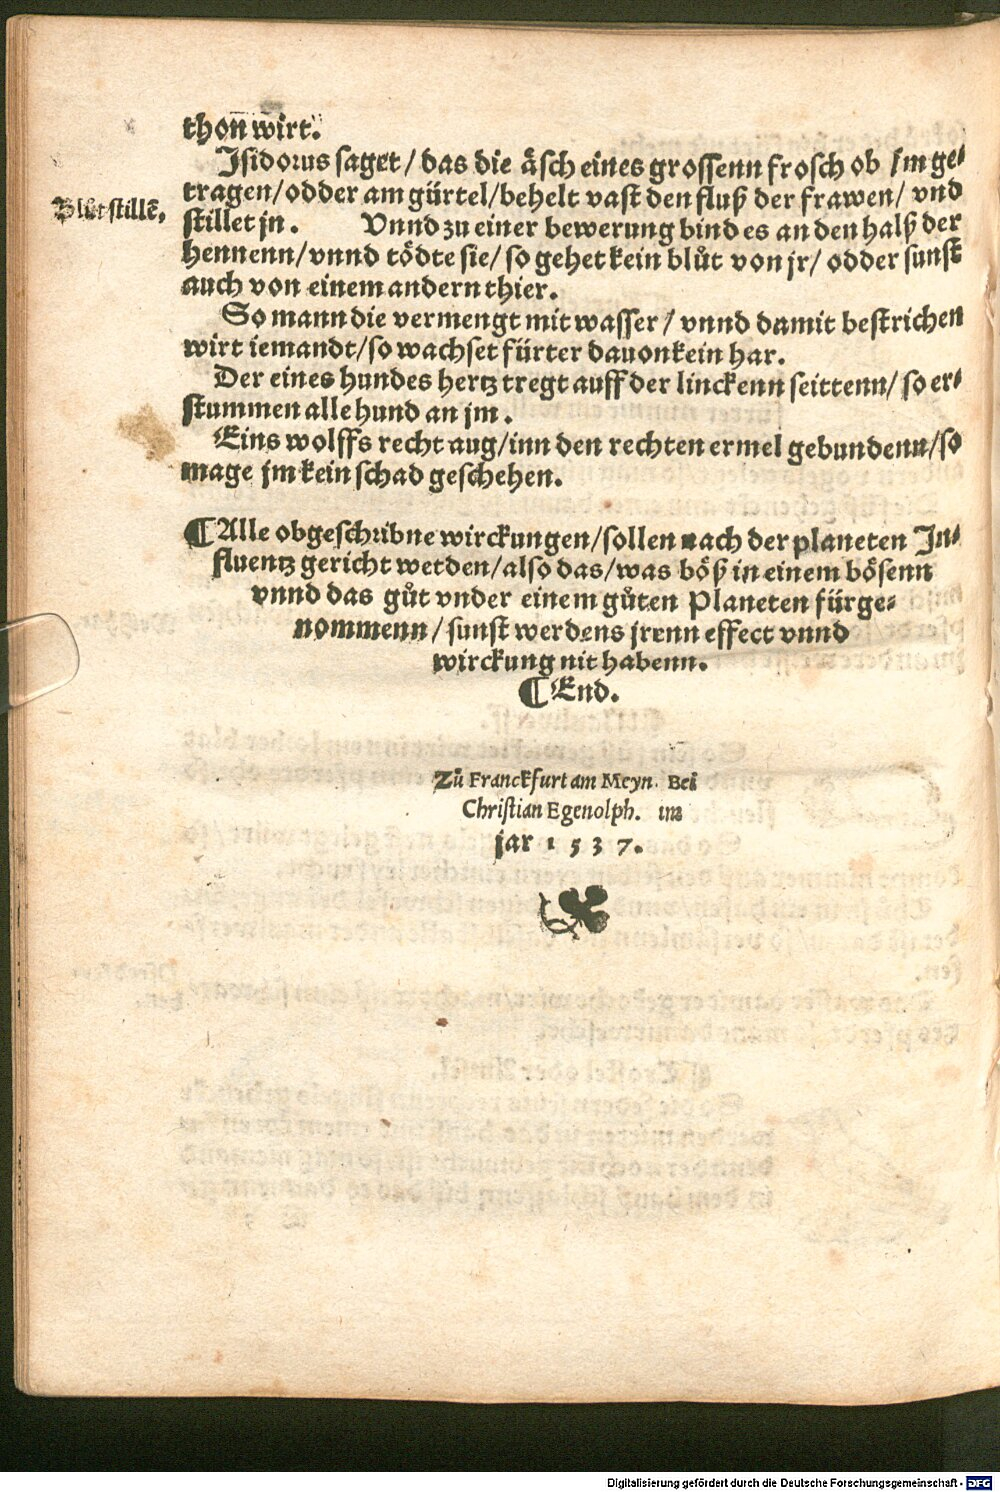 thoñ wirt.
Isidorus saget / das die äsch eines grossenn frosch ob jm ge-
tragen / odder am gürtel / behelt vast den fluß der frawen / vnd
Blůtstillẽ,
stillet jn. Vnnd zu einer bewerung bind es an den halß der
hennenn / vnnd tödte sie / so gehet kein blůt von jr / odder sunst
auch von einem andern thier.
So mann die vermengt mit wasser / vnnd damit bestrichen
wirt iemandt / so wachset fürter dauon kein har.
Der eines hundes hertz tregt auff der linckenn seittenn / so er-
stummen alle hund an jm.
Eins wolffs recht aug / inn den rechten ermel gebundenn / so
mage jm kein schad geschehen.
¶ Alle obgeschribne wirckungen / sollen nach der planeten In-
fluentz gericht wetden / also das / was böß in einem bösenn
vnnd das gůt vnder einem gůten Planeten fürge-
nommenn / sunst werdens jrenn effect vnnd
wirckung nit habenn.
¶ End.
Zů Franckfurt am Meyn. Bei
Christian Egenolph. im
jar 1537.
Digitalisierung gefördert durch die Deutsche Forschungsgemeinschaft - DFG